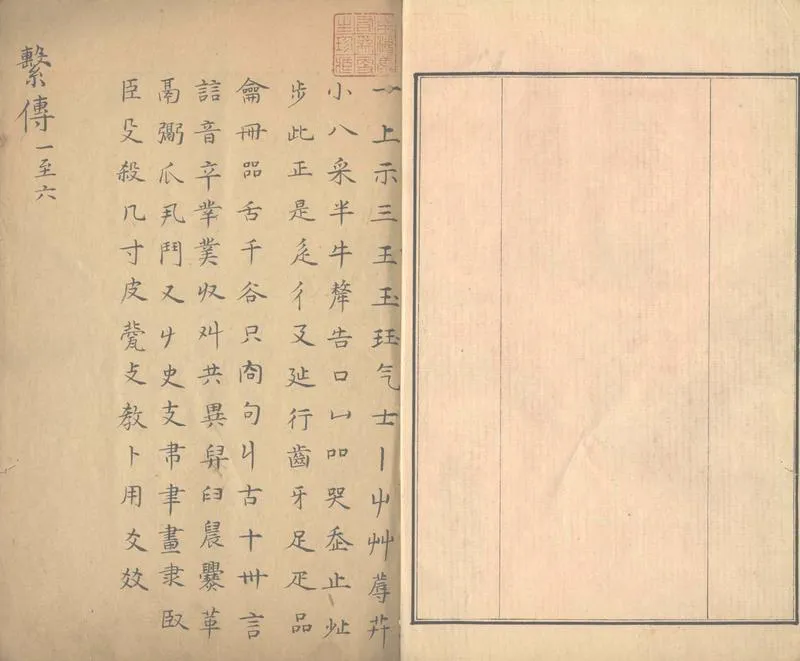 一上示三王玉珏气士丨屮艸蓐茻
小八釆半牛犛告口凵吅哭止癶
步此正是辵彳廴㢟行齒牙足疋品
龠冊㗊舌千谷只㕯句丩古十卅言
誩音䇂丵菐収𠬜共異舁臼䢅爨革
鬲䰜爪丮鬥又𠂇史支聿畫隶臤
臣殳殺几寸皮㼱攴教卜用爻效
繫傳一至六